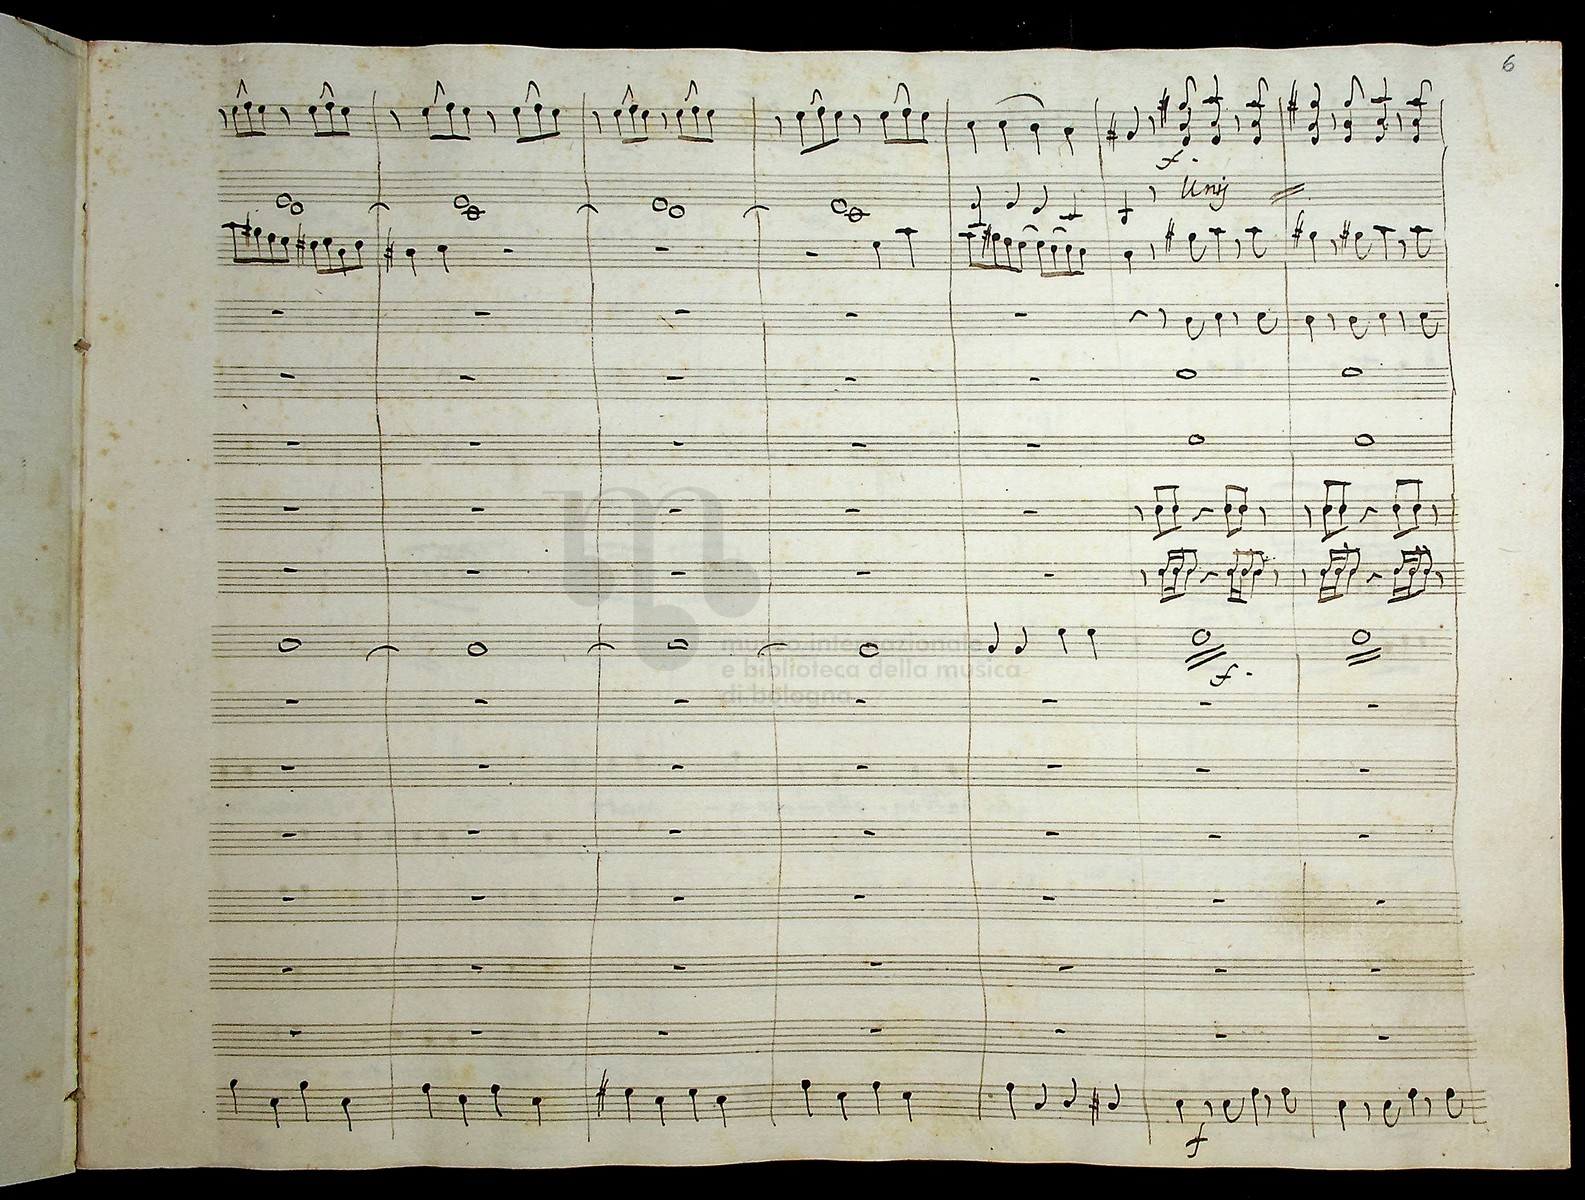 6
f.
Unis
museo internazionale
e biblioteca della musica
di bologna
f.
f